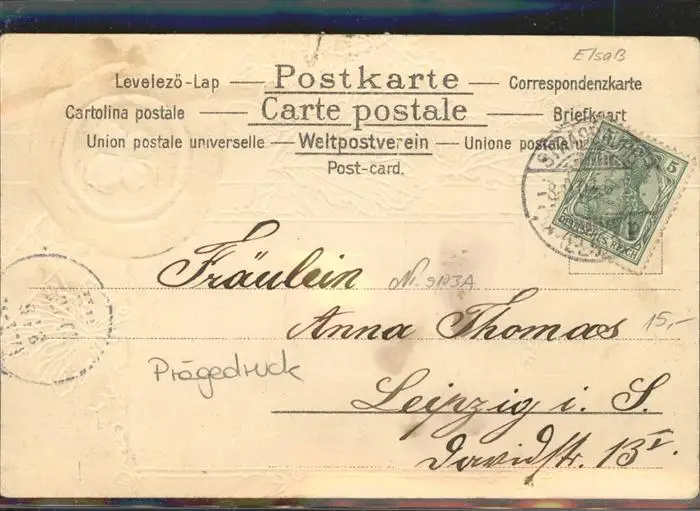 Elsaß
Levelező-Lap — Postkarte — Correspondenzkarte
Cartolina postale — Carte postale — Briefkaart
Union postale universelle — Weltpostverein — Unione postale
Post-card.
5
DEUTSCHES REICH
Fräulein Nr. 9103A
Anna Thomas 15,-
Prägedruck
Leipzig i. S.
Davidstr. 13 I.